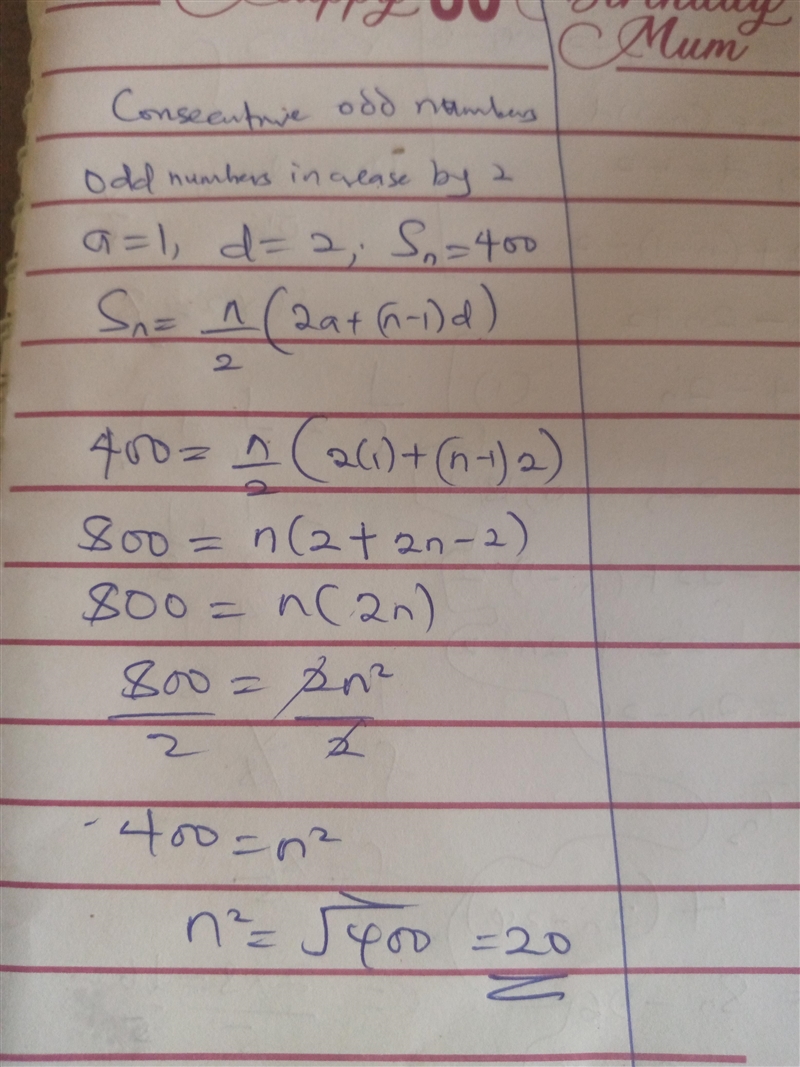 Happy 60 Birthday
Mum
Consecutive odd numbers
odd numbers increase by 2
a=1, d=2, Sₙ=400
Sₙ= n/2 (2a+(n-1)d)
400= n/2 (2(1)+(n-1)2)
800 = n(2+2n-2)
800 = n(2n)
800/2 = 2n²/2
400=n²
n²= √400 =20